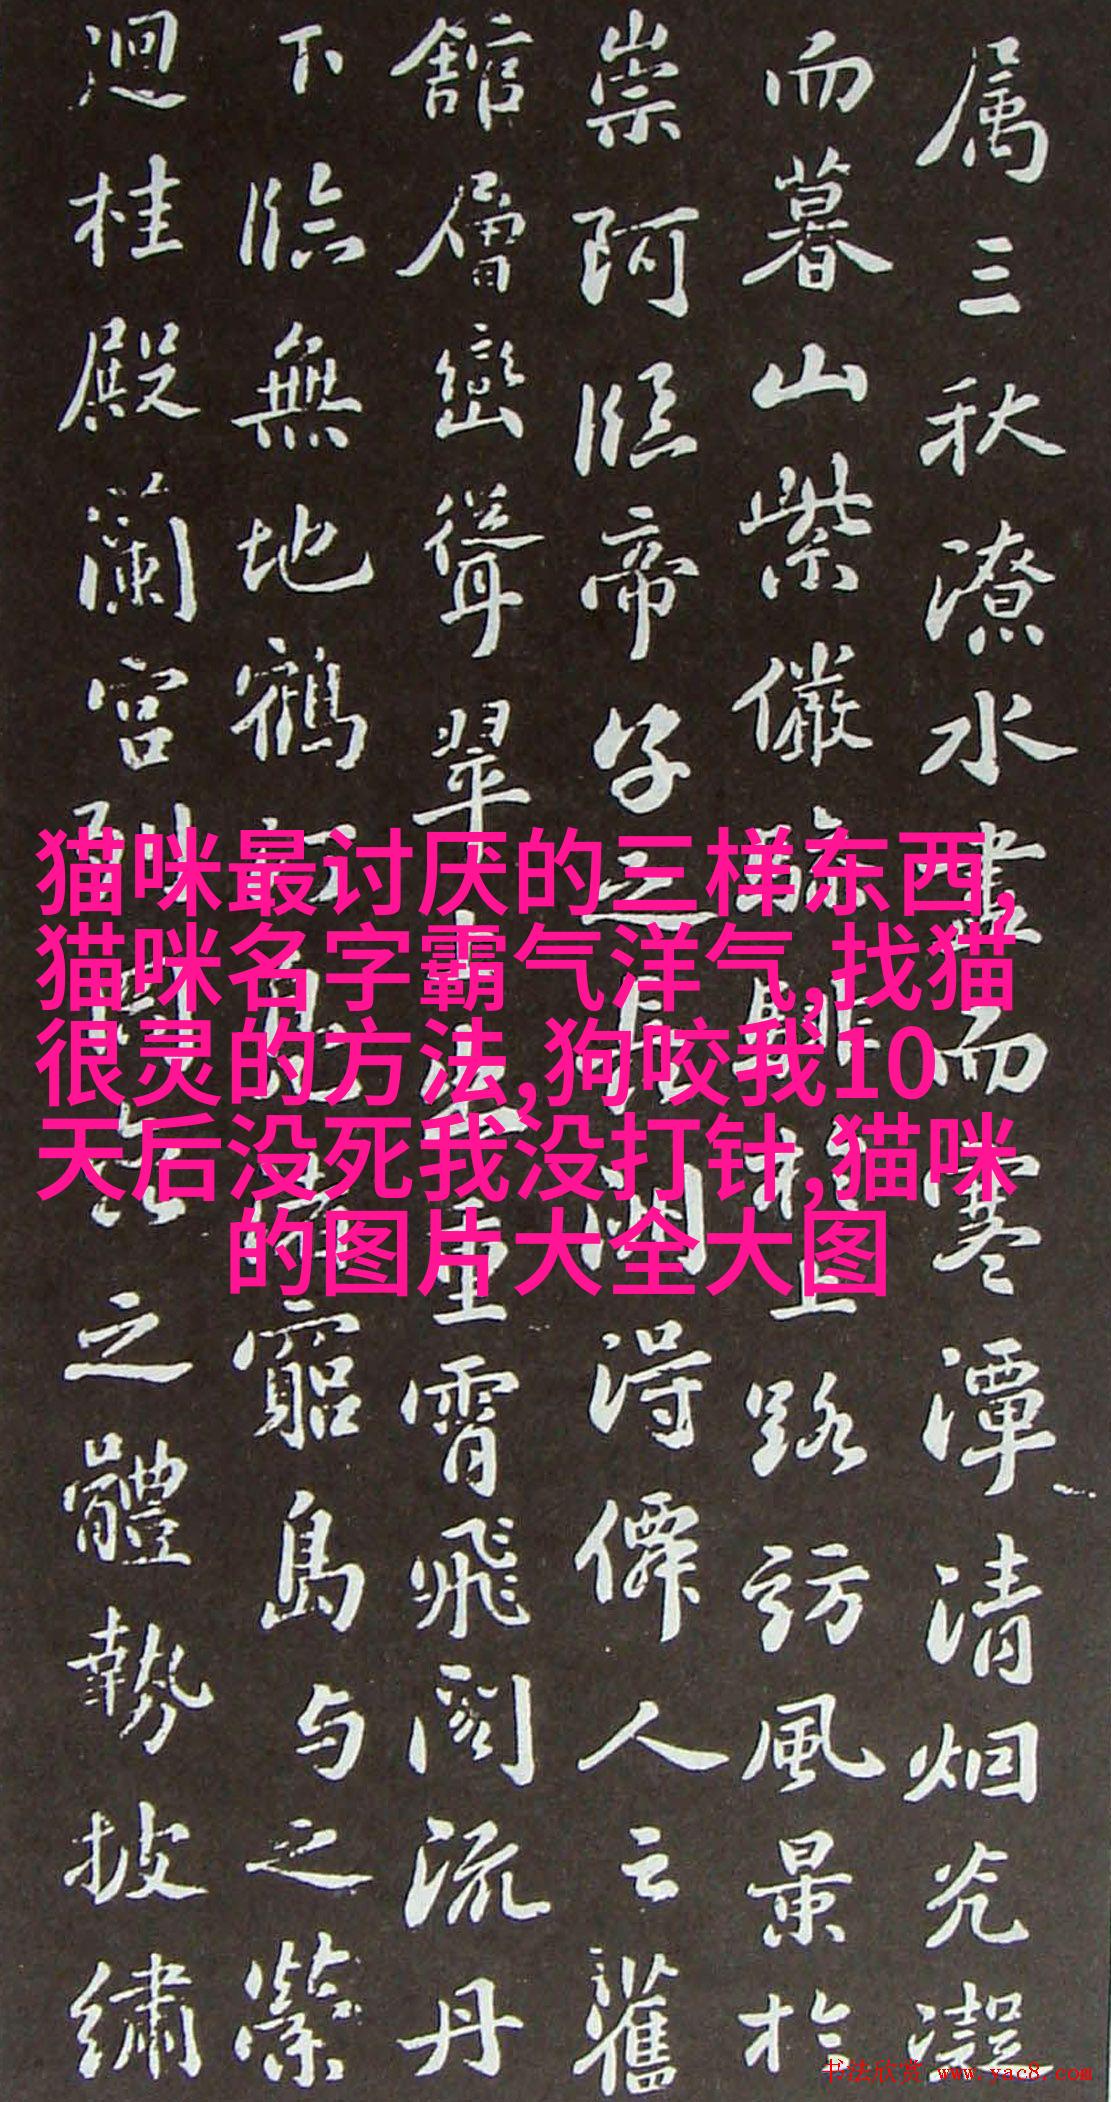 属三秋潦水盡而寒潭清烟光凝
而暮山紫儼驂騑於上路訪風景於
崇阿臨帝子之長洲得僊人之舊
舘層巒聳翠上出重霄飛閣流丹
下臨無地鶴汀鳧渚窮島与之縈
迴桂殿蘭宮列岡之體勢披繡
猫咪最讨厌的三样东西,
猫咪名字霸气洋气,找猫
很灵的方法,狗咬我10
天后没死我没打针,猫咪
的图片大全大图
书法欣赏 www.yac8.com